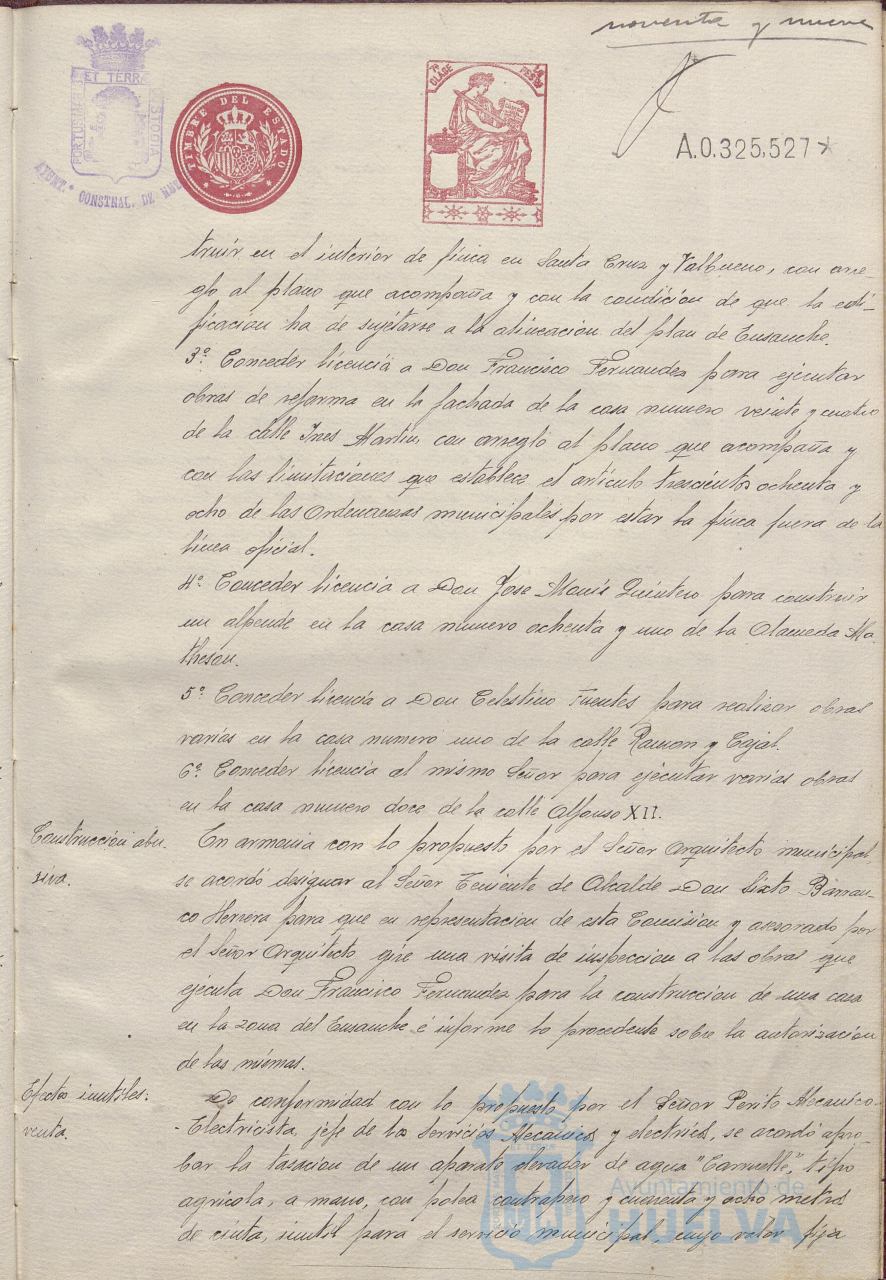 noventa y nueve
ET TERRÆ
PORTUS MARIS
CUSTODIA
AYUNT.º CONSTNAL. DE HUE
TIMBRE DEL ESTADO
7ª CLASE
A.0.325,527
truir en el interior de finca en Santa Cruz y Valbueno, con arre-
glo al plano que acompaña y con la condición de que la edi-
ficación ha de sujetarse a la alineación del plan de Ensanche.
3º Conceder licencia a Don Francisco Fernandez para ejecutar
obras de reforma en la fachada de la casa numero veinte y cuatro
de la calle Ines Martin, con arreglo al plano que acompaña y
con las limitaciones que establece el artículo trescientos ochenta y
ocho de las Ordenanzas municipales por estar la finca fuera de la
línea oficial.
4º Conceder licencia a Don Jose Monis Quintero para construir
un alpende en la casa numero ochenta y uno de la Alameda Ma
theson.
5º Conceder licencia a Don Celestino Fuentes para realizar obras
varias en la casa numero uno de la calle Ramon y Cajal.
6º Conceder licencia al mismo Señor para ejecutar varias obras
en la casa numero doce de la calle Alfonso XII.
Construcción abu
siva.
En armonia con lo propuesto por el Señor Arquitecto municipal,
se acordó designar al Señor Teniente de Alcalde Don Sixto Barran-
co Herrera para que en representacion de esta Comision y asesorado por
el Señor Arquitecto, gire una visita de inspeccion a las obras que
ejecuta Don Francisco Fernandez para la construccion de una casa
en la zona del Ensanche é informe lo procedente sobre la autorización
de las mismas.
Efectos inutiles:
venta.
De conformidad con lo propuesto por el Señor Perito Mecanico-
-Electricista, jefe de los Servicios Mecanicos y electricos, se acordó apro-
bar la tasacion de un aparato elevador de agua "Carruelle", tipo
agrícola, a mano, con polea contrapeso y cuarenta y ocho metros
de cinta, inutil para el servicio municipal, cuyo valor fija
Ayuntamiento de
HUELVA